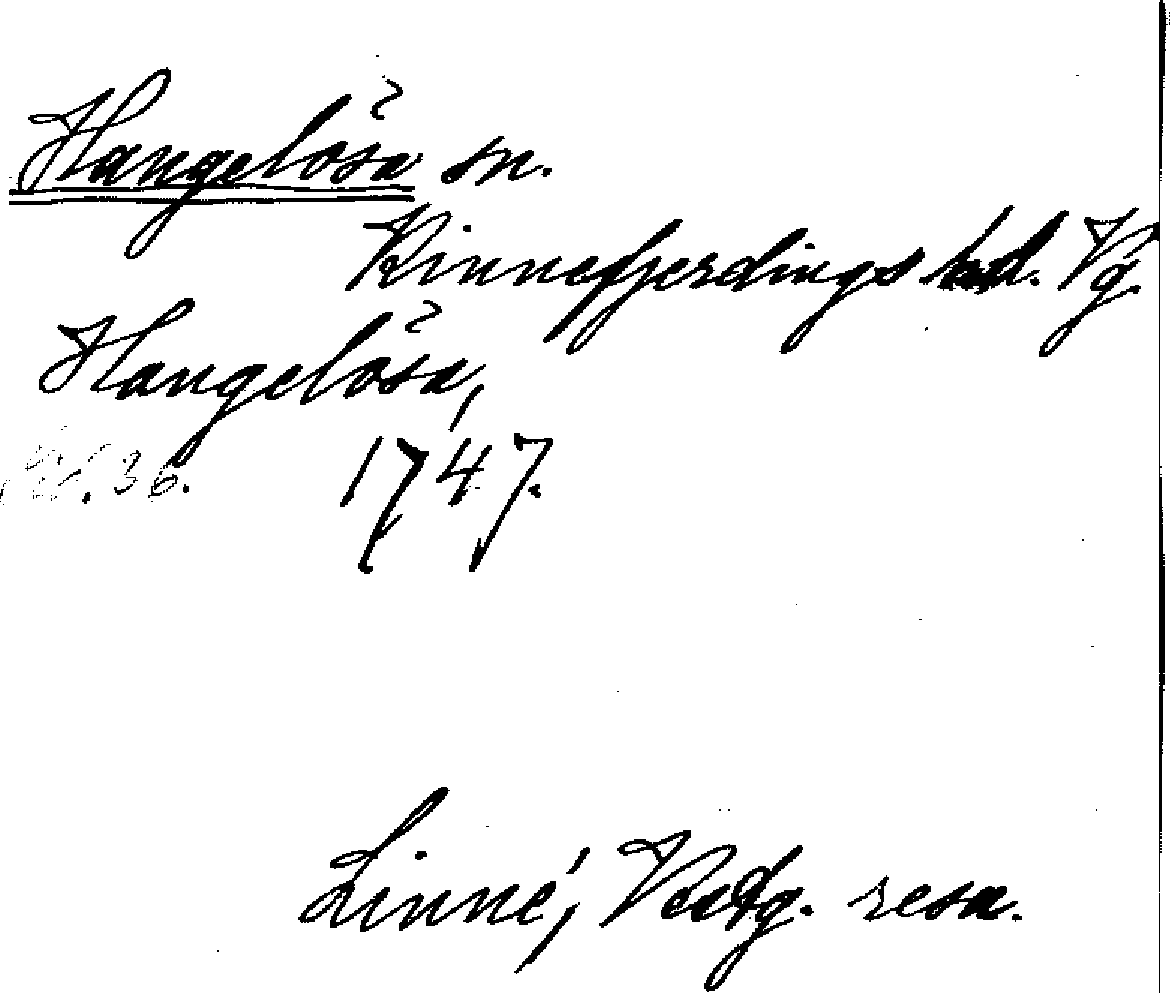 Hangelösa sn.
Kinnefjerdings hd. Vg
Hangelösa,
36. 1747.
Linné, Vestg. resa.